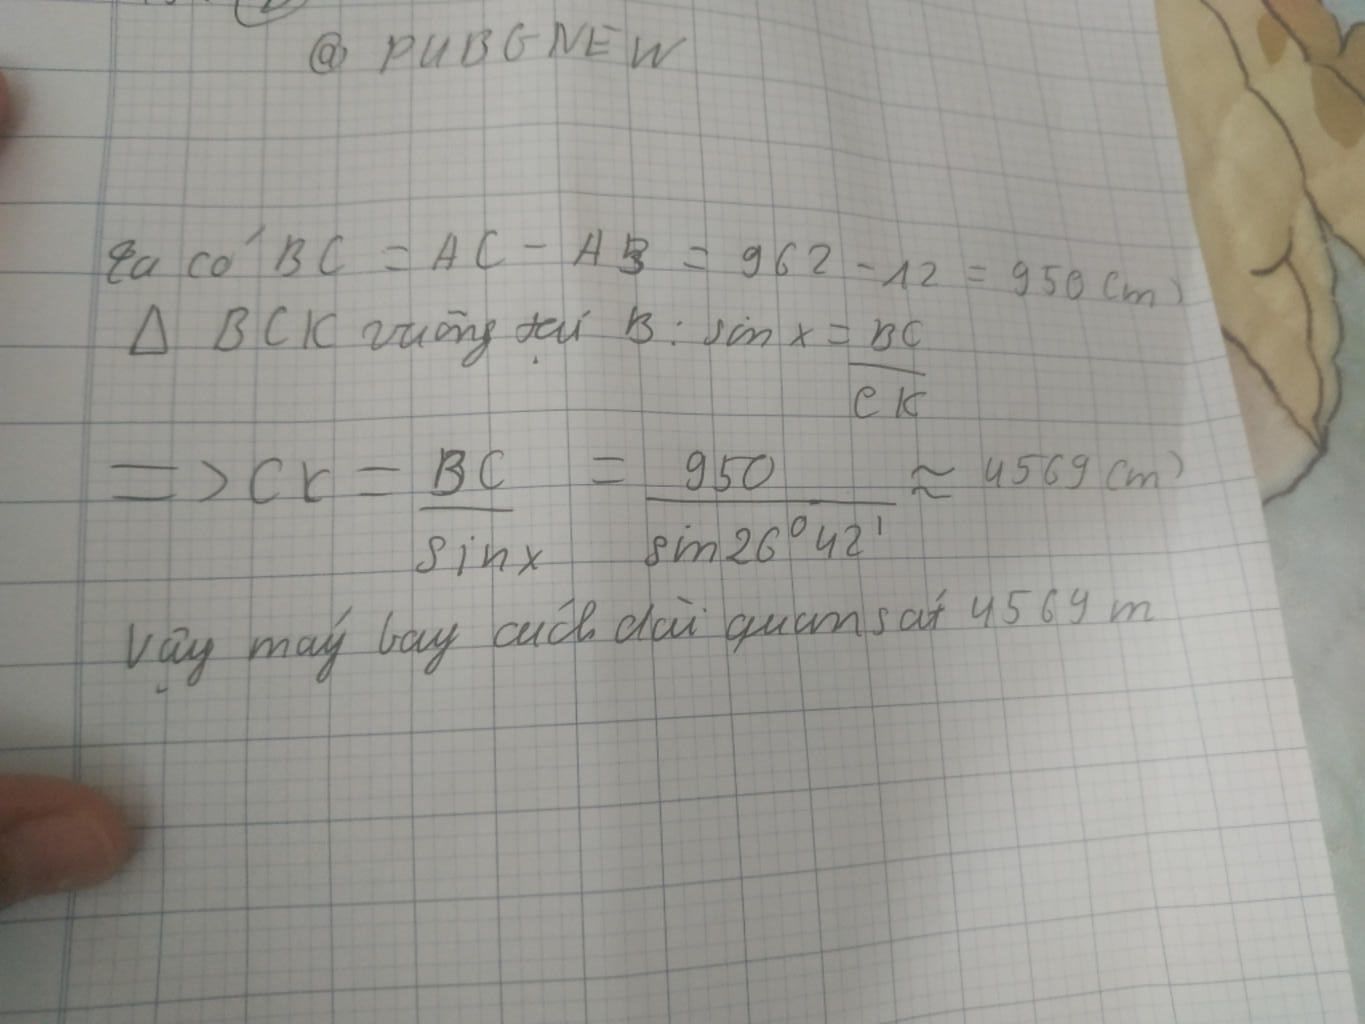 @ PUBGNEW
Ta có BC = AC - AB = 962 - 12 = 950 (m)
Δ BCK vuông tại B: sin x = BC/CK
=> CK = BC/sin x = 950/sin 26°42' ≈ 4569 (m)
Vậy máy bay cách đài quan sát 4569 m